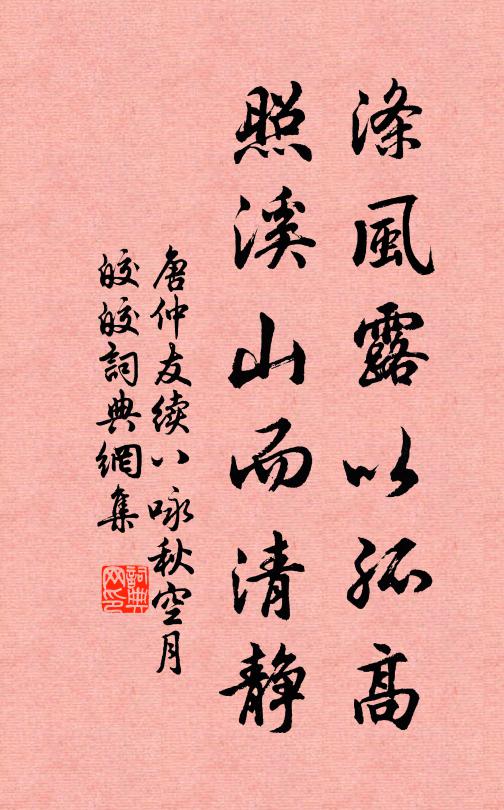 滌風露以孤高
照溪山而清靜
唐仲友續八咏秋空月
皎皎詞典網集
詞典
网印